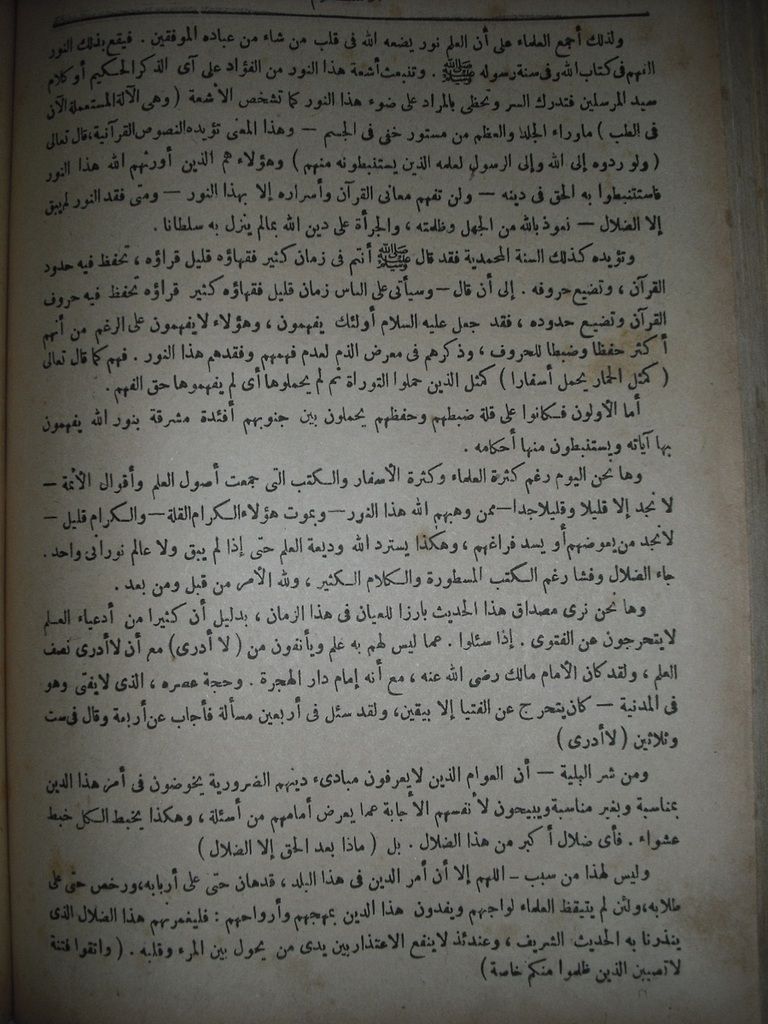 ولذلك أجمع العلماء على أن العلم نور يضعه الله فى قلب من شاء من عباده الموفقين . فيقع بذلك النور
الفهم فى كتاب الله وفى سنة رسوله ﷺ . وتنبعث أشعة هذا النور من الفؤاد على آى الذكر الحكيم أو كلام
سيد المرسلين فتدرك السر وتحظى بالمراد على ضوء هذا النور كما تشخص الأشعة ( وهى الآلة المستعملة الآن
فى الطب ) ماوراء الجلد والعظم من مستور خفى فى الجسم — وهذا المعنى تؤيده النصوص القرآنية، قال تعالى
( ولو ردوه إلى الله وإلى الرسول لعلمه الذين يستنبطونه منهم ) وهؤلاء هم الذين أورثهم الله هذا النور
فاستنبطوا به الحق فى دينه — ولن تفهم معانى القرآن وأسراره إلا بهذا النور — ومتى فقد النور لم يبق
إلا الضلال — نعوذ بالله من الجهل وظلمته ، والجرأة على دين الله بمالم ينزل به سلطانا .
وتؤيده كذلك السنة المحمدية فقد قال ﷺ أنتم فى زمان كثير فقهاؤه قليل قراؤه ، تحفظ فيه حدود
القرآن ، وتضيع حروفه . إلى أن قال — وسيأتى على الناس زمان قليل فقهاؤه كثير قراؤه تحفظ فيه حروف
القرآن وتضيع حدوده ، فقد جعل عليه السلام أولئك يفهمون ، وهؤلاء لا يفهمون على الرغم من أنهم
أكثر حفظا وضبطا للحروف ، وذكرهم فى معرض الذم لعدم فهمهم وفقدهم هذا النور . فهم كما قال تعالى
( كمثل الحمار يحمل أسفارا ) كمثل الذين حملوا التوراة ثم لم يحملوها أى لم يفهموها حق الفهم .
أما الأولون فكانوا على قلة ضبطهم وحفظهم يحملون بين جنوبهم أفئدة مشرقة بنور الله يفهمون
بها آياته ويستنبطون منها أحكامه .
وها نحن اليوم رغم كثرة العلماء وكثرة الأسفار والكتب التى جمعت أصول العلم وأقوال الأئمة —
لا نجد إلا قليلا وقليلا جدا — ممن وهبهم الله هذا النور — وبموت هؤلاء الكرام القلة — والكرام قليل —
لانجد من يعوضهم أو يسد فراغهم ، وهكذا يسترد الله وديعة العلم حتى إذا لم يبق ولا عالم نورانى واحد .
جاء الضلال وفشا رغم الكتب المسطورة والكلام الكثير ، ولله الأمر من قبل ومن بعد .
وها نحن نرى مصداق هذا الحديث بارزا للعيان فى هذا الزمان ، بدليل أن كثيرا من أدعياء العلم
لايتحرجون عن الفتوى . إذا سئلوا . عما ليس لهم به علم ويأنفون من ( لا أدرى ) مع أن لا أدرى نصف
العلم ، ولقد كان الأمام مالك رضى الله عنه ، مع أنه إمام دار الهجرة . وحجة عصره ، الذى لايفتى وهو
فى المدنية — كان يتحرج عن الفتيا إلا بيقين، ولقد سئل فى أربعين مسألة فأجاب عن أربعة وقال فى ست
وثلاثين ( لا أدرى )
ومن شر البلية — أن العوام الذين لايعرفون مبادىء دينهم الضرورية يخوضون فى أمر هذا الدين
بمناسبة وبغير مناسبة ويبيحون لأنفسهم الأجابة عما يعرض أمامهم من أسئلة ، وهكذا يخبط الكل خبط
عشواء . فأى ضلال أكبر من هذا الضلال . بل ( ماذا بعد الحق إلا الضلال )
وليس لهذا من سبب — اللهم إلا أن أمر الدين فى هذا البلد ، قدهان حتى على أربابه، ورخص حتى على
طلابه، ولئن لم يتيقظ العلماء لواجبهم ويفدون هذا الدين بمهجهم وأرواحهم : فليغمرنهم هذا الضلال الذى
ينذرنا به الحديث الشريف ، وعندئذ لاينفع الاعتذار بين يدى من يحول بين المرء وقلبه . ( واتقوا فتنة
لاتصيبن الذين ظلموا منكم خاصة )